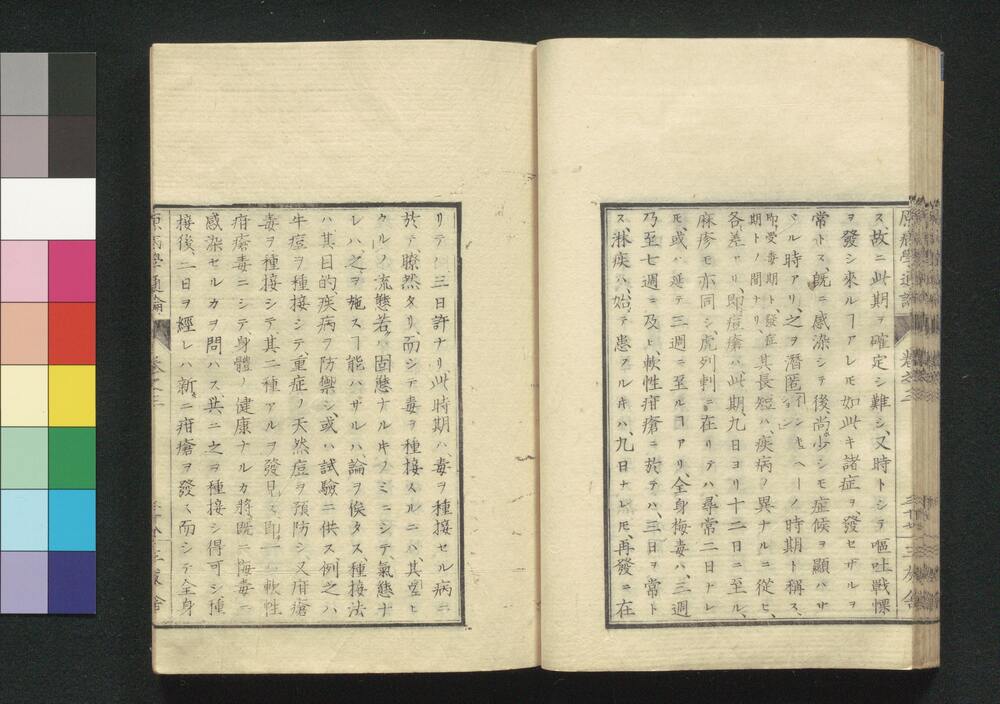 ス故ニ此期ヲ確定シ難シ、又時トシテ嘔吐戰慄
ヲ發シ來ルヿアレ𪜈如此キ諸症ヲ發セザルヲ
常トス、既ニ感染シテ後、尚少シモ症候ヲ顯ハサ
ヾル時アリ、之ヲ潜匿インキュベーション ノ時期ト稱ス、
即受毒期ト發症期トノ間ナリ、其長短ハ疾病ノ異ナルニ從ヒ、
各差アリ、即痘瘡ハ此期、九日ヨリ十二日ニ至ル、
麻疹モ亦同シ、虎列剌ニ在リテハ、尋常二日ナレ
𪜈或ハ延テ三週ニ至ルヿアリ、全身梅毒ハ、三週
乃至七週ニ及ヒ、軟性疳瘡ニ於テハ、三日ヲ常ト
ス、淋疾ハ、始テ患フルキハ九日ナレ𪜈、再發ニ在
リテハ三日許ナリ、此時期ハ、毒ヲ種接セル病ニ
於テ瞭然タリ、而シテ毒ヲ種接スルニハ、其
クルノ流態若クハ固態ナルキノミニシテ、氣態ナ
レハ之ヲ施スヿ能ハザルハ、論ヲ俟タス、種接法
ハ其目的疾病ヲ防禦シ、或ハ試驗ニ供ス、例之ハ
牛痘ヲ種接シテ重症ノ天然痘ヲ預防シ、又疳瘡
毒ヲ種接シテ、其二種アルヲ發見ス、即一ハ軟性
疳瘡毒ニシテ、身體ノ健康ナルカ將既ニ梅毒ニ
感染セルカヲ問ハス共ニ之ヲ種接シ得可シ、種
接後、二日ヲ經レハ新ニ疳瘡ヲ發ス、而シテ全身
原病學通論
卷之三
三友舎